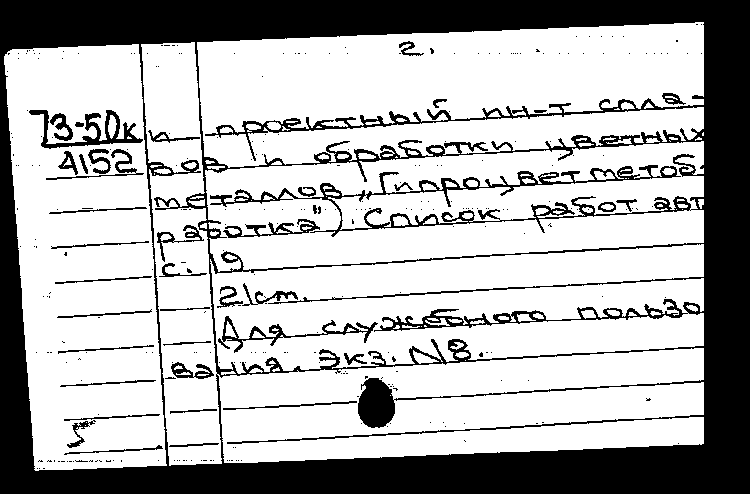 2.
73-50к и проектный ин-т спла-
4152 вов и обработки цветных
металлов „Гипроцветметоб-
работка"). Список работ авт.
с. 19.
21см.
Для служебного пользо
вания. Экз. N8.
5